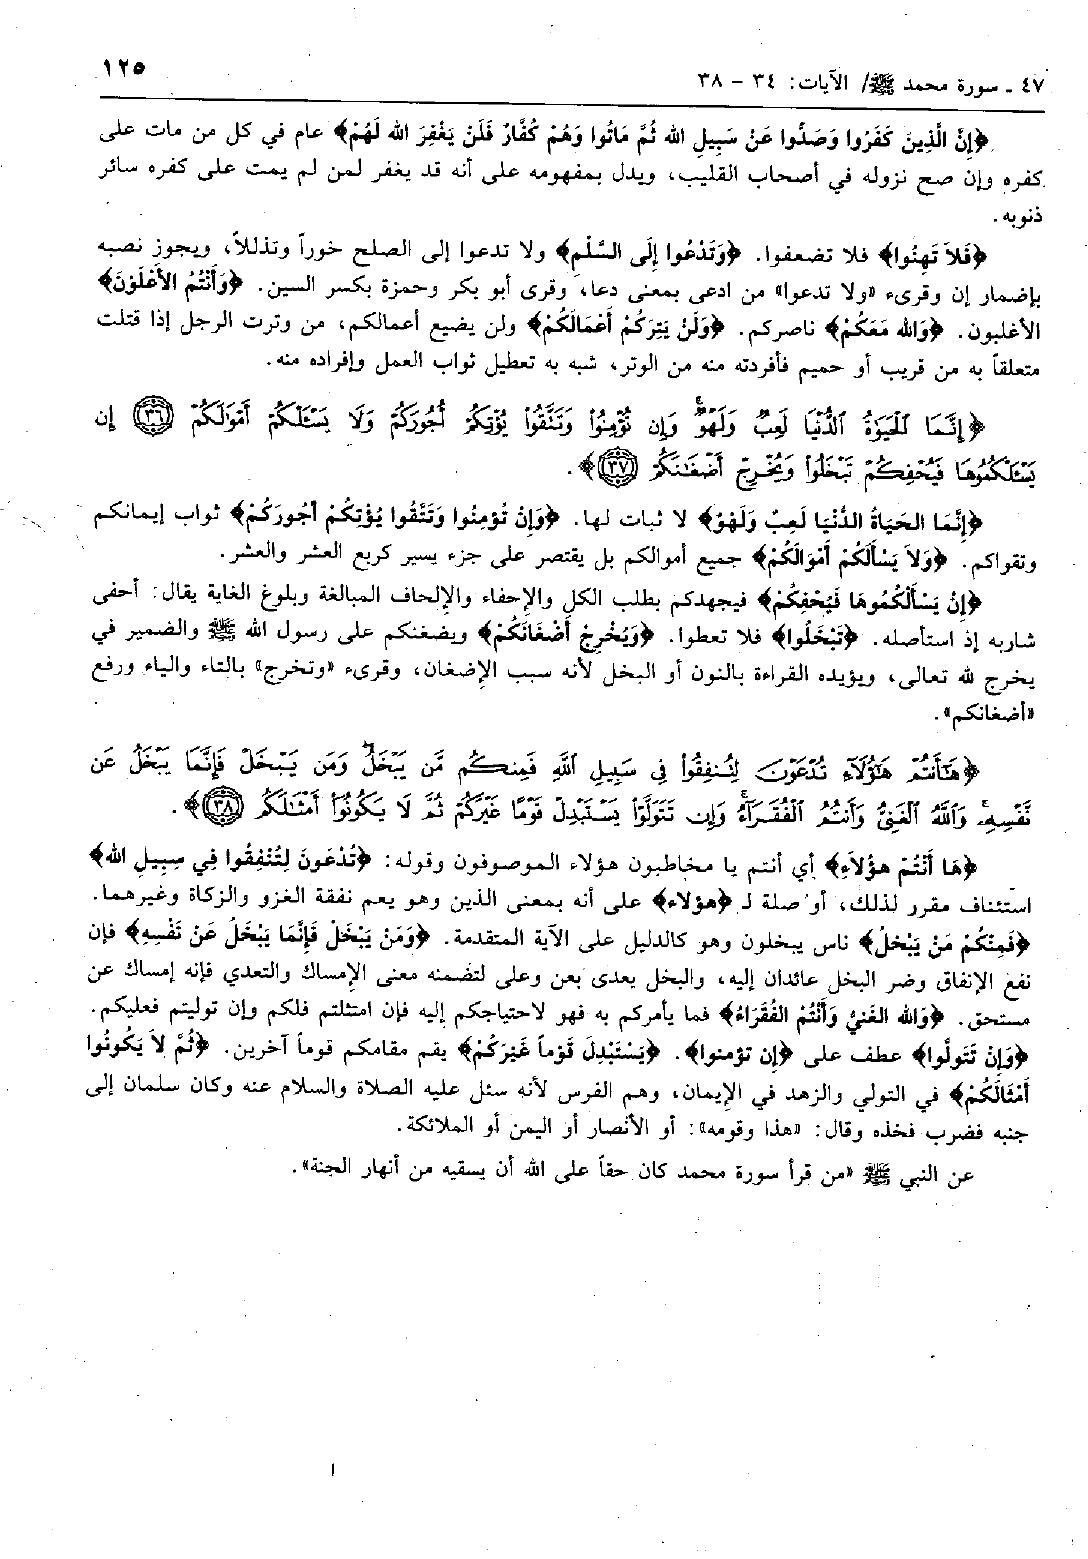 ٤٧ ـ سورة محمد ﷺ/ الآيات: ٣٤ – ٣٨
١٢٥
﴿إِنَّ الَّذِينَ كَفَرُوا وَصَدُّوا عَنْ سَبِيلِ الله ثُمَّ مَاتُوا وَهُمْ كُفَّارٌ فَلَن يَغْفِرَ الله لَهُمْ﴾ عام في كل من مات على
كفره وإن صح نزوله في أصحاب القليب، ويدل بمفهومه على أنه قد يغفر لمن لم يمت على كفره سائر
ذنوبه.
﴿فَلاَ تَهِنُوا﴾ فلا تضعفوا. ﴿وَتَدْعُوا إِلَى السَّلْمِ﴾ ولا تدعوا إلى الصلح خوراً وتذللاً، ويجوز نصبه
بإضمار إن وقرىء «ولا تدعوا» من ادعى بمعنى دعا، وقرى أبو بكر وحمزة بكسر السين. ﴿وَأَنْتُمُ الأَعْلَوْنَ﴾
الأغلبون. ﴿وَالله مَعَكُمْ﴾ ناصركم. ﴿وَلَنْ يَتِرَكُمْ أَعْمَالَكُمْ﴾ ولن يضيع أعمالكم، من وترت الرجل إذا قتلت
متعلقاً به من قريب أو حميم فأفردته منه من الوتر، شبه به تعطيل ثواب العمل وإفراده منه.
﴿إِنَّمَا الْحَيَوٰةُ الدُّنْيَا لَعِبٌ وَلَهْوٌ وَإِن تُؤْمِنُوا وَتَتَّقُوا يُؤْتِكُمْ أُجُورَكُمْ وَلَا يَسْـَٔلْكُمْ أَمْوَٰلَكُمْ ٣٦ إِن
يَسْـَٔلْكُمُوهَا فَيُحْفِكُمْ تَبْخَلُوا وَيُخْرِجْ أَضْغَٰنَكُمْ ٣٧﴾.
﴿إِنَّمَا الحَيَاةُ الدُّنْيَا لَعِبٌ وَلَهْوٌ﴾ لا ثبات لها. ﴿وَإِنْ تُؤْمِنُوا وَتَتَّقُوا يُؤْتِكُمْ أُجُورَكُمْ﴾ ثواب إيمانكم
وتقواكم. ﴿وَلاَ يَسْأَلْكُمْ أَمْوَالَكُمْ﴾ جميع أموالكم بل يقتصر على جزء يسير كربع العشر والعشر.
﴿إِنْ يَسْأَلْكُمُوهَا فَيُحْفِكُمْ﴾ فيجهدكم بطلب الكل والإحفاء والإلحاف المبالغة وبلوغ الغاية يقال: أحفى
شاربه إذ استأصله. ﴿تَبْخَلُوا﴾ فلا تعطوا. ﴿وَيُخْرِجِ أَضْغَانَكُمْ﴾ ويضغنكم على رسول الله ﷺ والضمير في
يخرج لله تعالى، ويؤيده القراءة بالنون أو البخل لأنه سبب الإضغان، وقرىء «وتخرج» بالتاء والياء ورفع
«أضغانكم».
﴿هَٰٓأَنتُمْ هَٰٓؤُلَآءِ تُدْعَوْنَ لِتُنفِقُوا فِى سَبِيلِ اللَّهِ فَمِنكُم مَّن يَبْخَلُ وَمَن يَبْخَلْ فَإِنَّمَا يَبْخَلُ عَن
نَّفْسِهِۦ وَاللَّهُ الْغَنِىُّ وَأَنتُمُ الْفُقَرَآءُ وَإِن تَتَوَلَّوْا يَسْتَبْدِلْ قَوْمًا غَيْرَكُمْ ثُمَّ لَا يَكُونُوٓا أَمْثَٰلَكُم ٣٨﴾.
﴿هَا أَنْتُمْ هؤُلاَءِ﴾ أي أنتم يا مخاطبون هؤلاء الموصوفون وقوله: ﴿تُدْعَونَ لِتُنْفِقُوا فِي سِبِيلِ الله﴾
استئناف مقرر لذلك، أو صلة لـ ﴿هؤلاء﴾ على أنه بمعنى الذين وهو يعم نفقة الغزو والزكاة وغيرهما.
﴿فَمِنْكُمْ مَنْ يَبْخلُ﴾ ناس يبخلون وهو كالدليل على الآية المتقدمة. ﴿وَمَنْ يَبْخَلْ فَإِنَّمَا يَبْخَلُ عَنْ نَفْسِهِ﴾ فإن
نفع الإنفاق وضر البخل عائدان إليه، والبخل يعدى بعن وعلى لتضمنه معنى الإمساك والتعدي فإنه إمساك عن
مستحق. ﴿وَالله الغَنيُّ وَأَنْتُمُ الفُقَرَاءُ﴾ فما يأمركم به فهو لاحتياجكم إليه فإن امتثلتم فلكم وإن توليتم فعليكم.
﴿وَإِنْ تَتَولَّوا﴾ عطف على ﴿إن تؤمنوا﴾. ﴿يَسْتَبْدِلَ قَوْماً غَيْرَكُمْ﴾ يقم مقامكم قوماً آخرين. ﴿ثُمَّ لاَ يَكُونُوا
أَمْثَالَكُمْ﴾ في التولي والزهد في الإيمان، وهم الفرس لأنه سئل عليه الصلاة والسلام عنه وكان سلمان إلى
جنبه فضرب فخذه وقال: «هذا وقومه»: أو الأنصار أو اليمن أو الملائكة.
عن النبي ﷺ «من قرأ سورة محمد كان حقاً على الله أن يسقيه من أنهار الجنة».